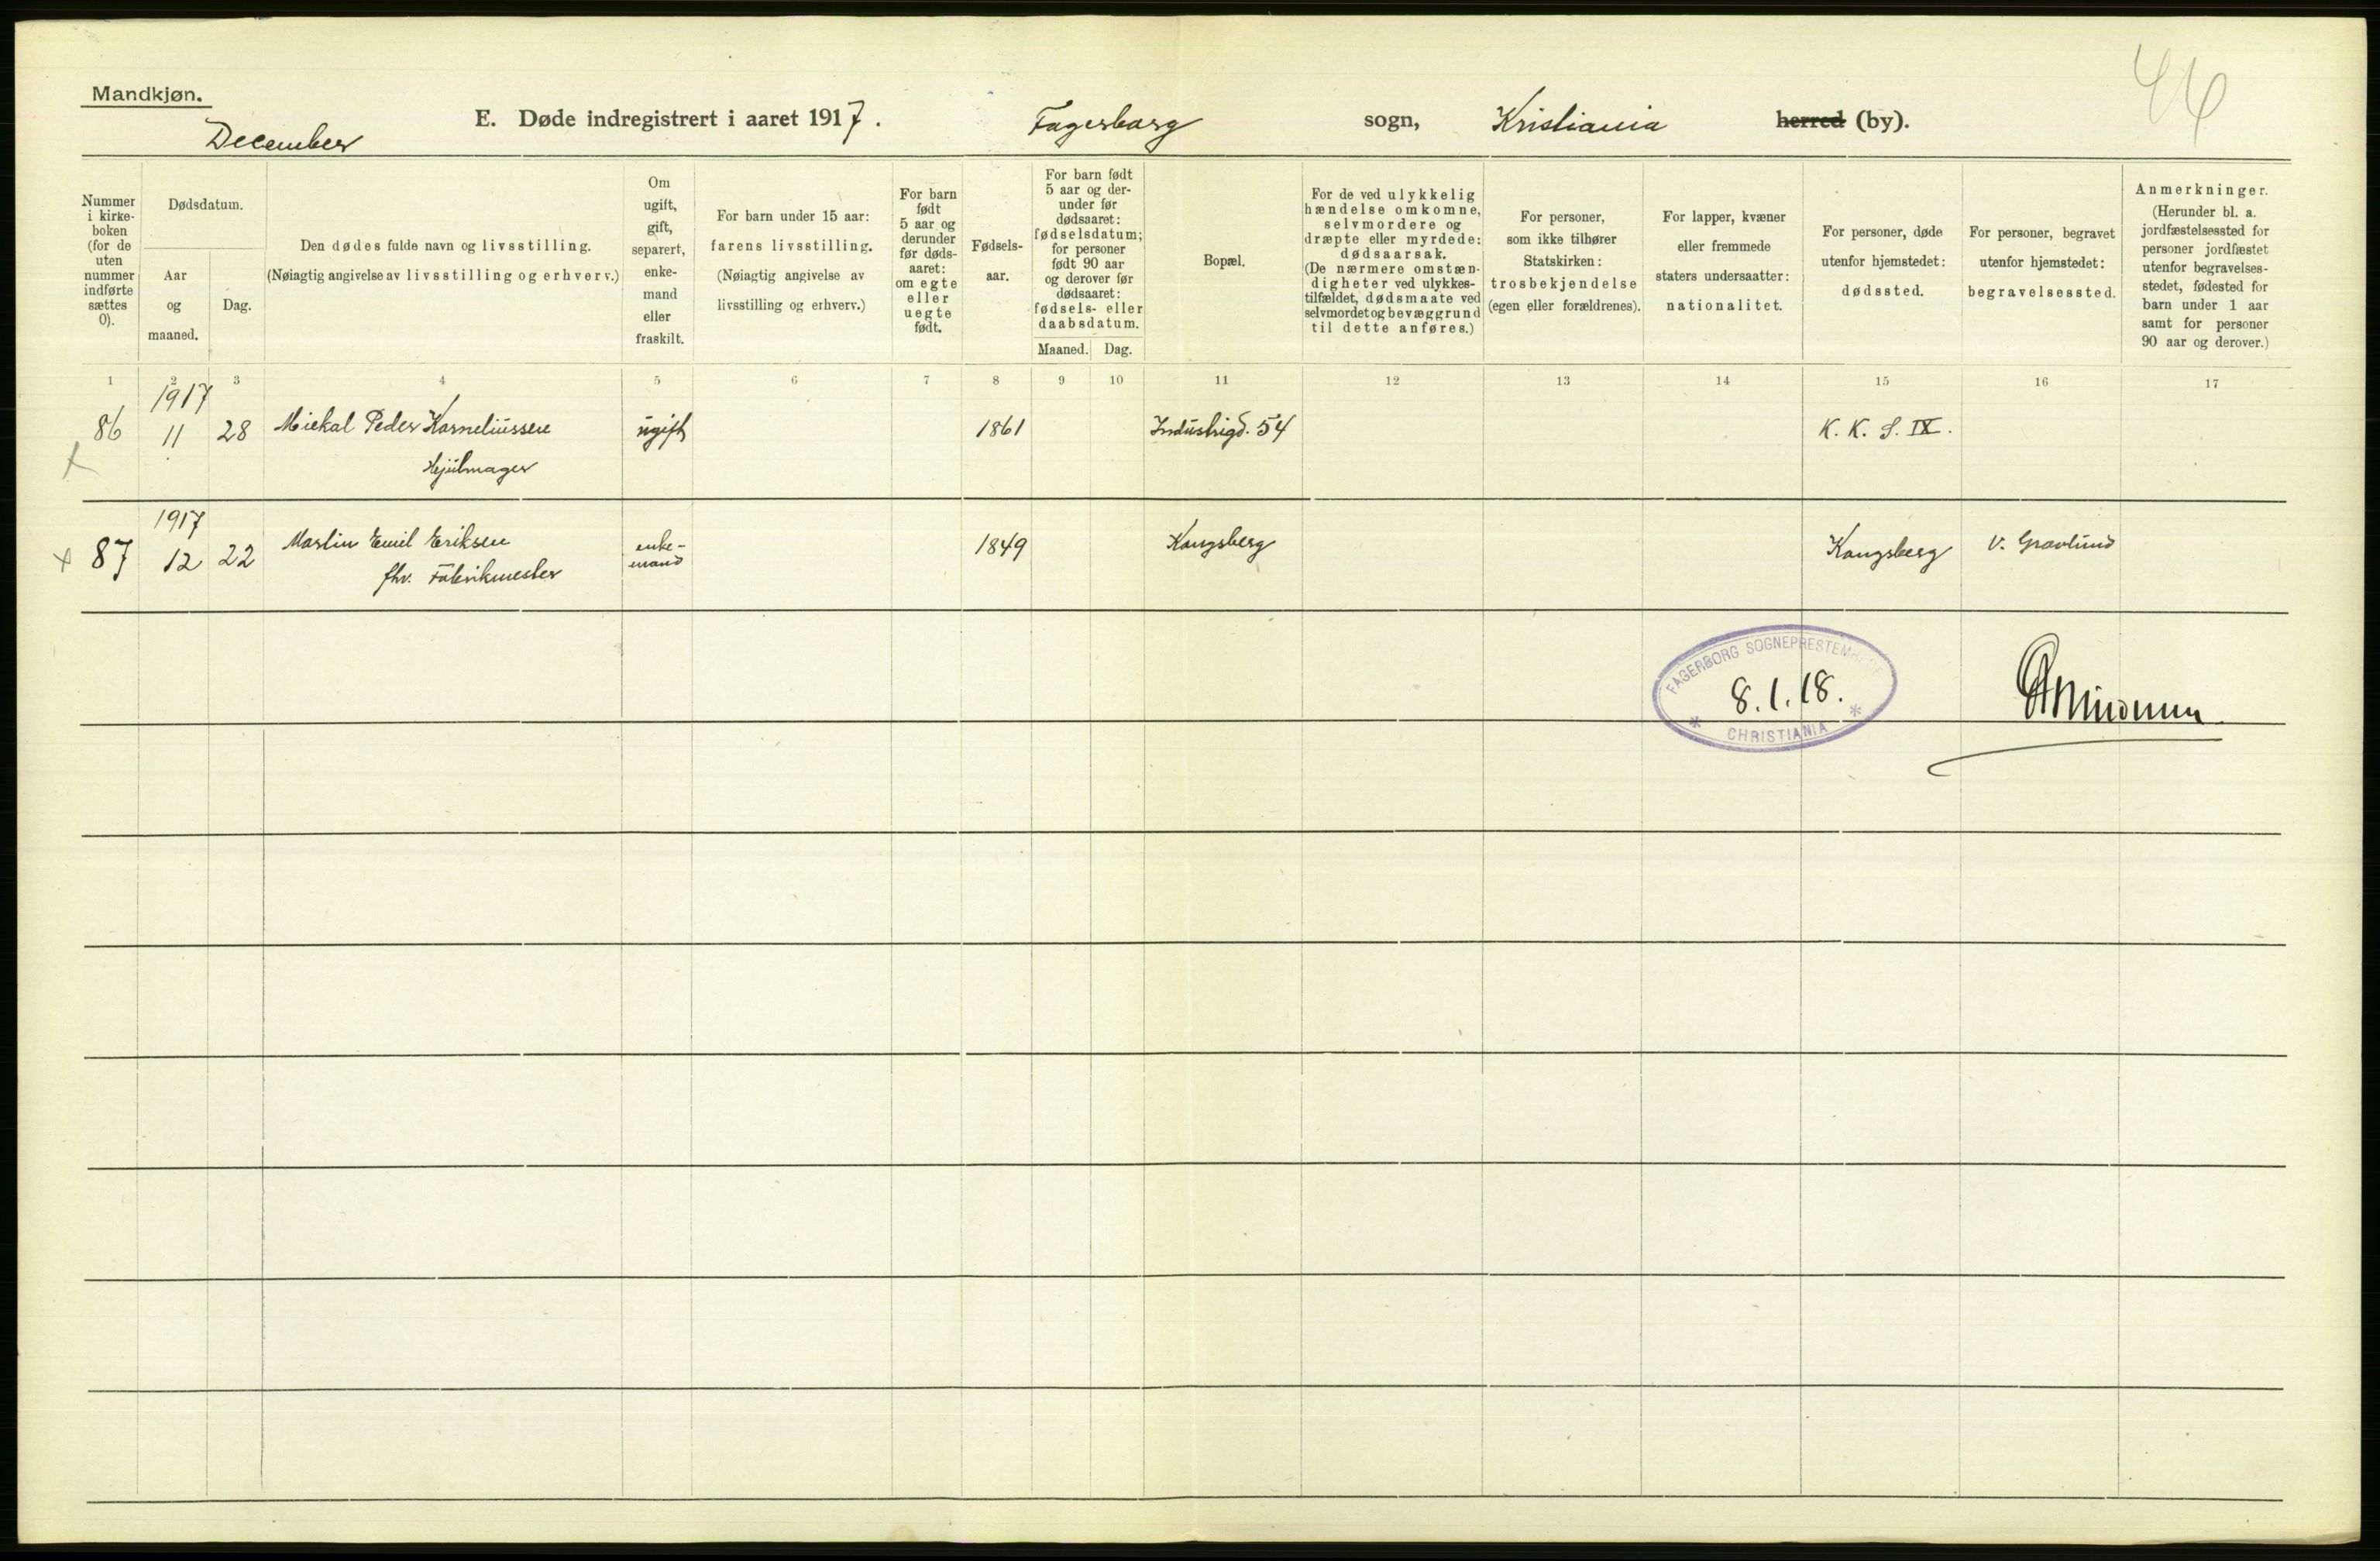 Mandkjøn.
December
E. Døde indregistrert i aaret 1917.
Fagerborg sogn, Kristiania herred (by).
46
Nummer
i kirke-
boken
(for de
uten
nummer
indførte
sættes
0).
Dødsdatum.
Aar
og
maaned.
Dag.
Den dødes fulde navn og livsstilling.
(Nøiagtig angivelse av livsstilling og erhverv.)
Om
ugift,
gift,
separert,
enke-
mand
eller
fraskilt.
For barn under 15 aar:
farens livsstilling.
(Nøiagtig angivelse av
livsstilling og erhverv.)
For barn
født
5 aar og
derunder
før døds-
aaret:
om egte
eller
uegte
født.
Fødsels-
aar.
For barn født
5 aar og der-
under før
dødsaaret:
fødselsdatum;
for personer
født 90 aar
og derover før
dødsaaret:
fødsels- eller
daabsdatum.
Maaned. Dag.
Bopæl.
For de ved ulykkelig
hændelse omkomne,
selvmordere og
dræpte eller myrdede:
dødsaarsak.
(De nærmere omstæn-
digheter ved ulykkes-
tilfældet, dødsmaate ved
selvmordet og bevæggrund
til dette anføres.)
For personer,
som ikke tilhører
Statskirken:
trosbekjendelse
(egen eller forældrenes).
For lapper, kvæner
eller fremmede
staters undersaatter:
nationalitet.
For personer, døde
utenfor hjemstedet:
dødssted.
For personer, begravet
utenfor hjemstedet:
begravelsessted.
Anmerkninger.
(Herunder bl. a.
jordfæstelsessted for
personer jordfæstet
utenfor begravelses-
stedet, fødested for
barn under 1 aar
samt for personer
90 aar og derover.)
1 2 3 4 5 6 7 8 9 10 11 12 13 14 15 16 17
1917
86 11 28 Mickal Peder Korneliussen ugift 1861 Industrigd. 54 K. K. S. IX.
Hjulmager
1917
87 12 22 Martin Emil Eriksen enke- 1849 Kongsberg Kongsberg V. Gravlund
fhv. Fabrikmester mand
FAGERBORG SOGNEPRESTEMBEDE
8.1.18.
* CHRISTIANIA *